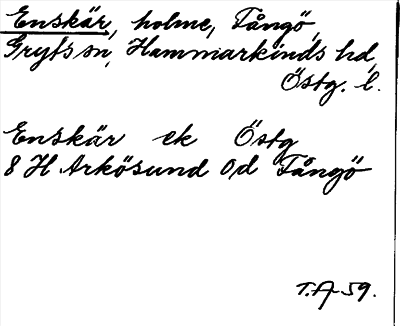 Enskär, holme, Tångö,
Gryts sn, Hammarkinds hd,
Östg. l.
Enskär ek Östg
8 H Arkösund Od Tångö
T.A-59.